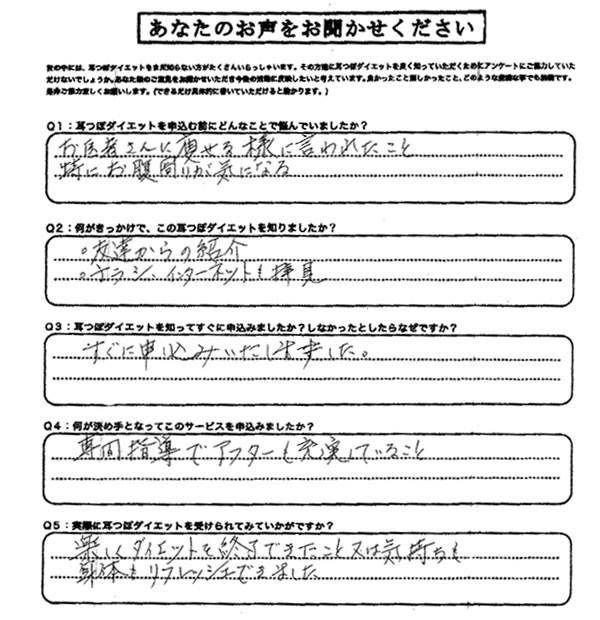 あなたのお声をお聞かせください
世の中には、耳つぼダイエットをまだ知らない方がたくさんいらっしゃいます。その方達に耳つぼダイエットを良く知っていただくためにアンケートにご協力していた
だけないでしょうか。あなた様のご意見をお聞かせいただき今後の活動に反映したいと考えています。良かったこと嬉しかったこと、どのような些細な事でも結構です。
是非ご協力宜しくお願いします。(できるだけ具体的に書いていただけると助かります。)
Q1：耳つぼダイエットを申込む前にどんなことで悩んでいましたか？
お医者さんに痩せる様に言われたこと
特にお腹周りが気になる
Q2：何がきっかけで、この耳つぼダイエットを知りましたか？
。友達からの紹介
。チラシ、インターネットも拝見
Q3：耳つぼダイエットを知ってすぐに申込みましたか？しなかったとしたらなぜですか？
すぐに申し込みいたしました。
Q4：何が決め手となってこのサービスを申込みましたか？
専門指導でアフターも充実していること
Q5：実際に耳つぼダイエットを受けられてみていかがですか？
楽しくダイエットを終了できたこと又は気持ちも
身体もリフレッシュできました